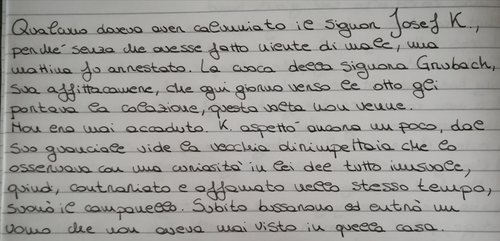 Qualcuno doveva aver calunniato il signor Josef K.,
perché senza che avesse fatto niente di male, una
mattina fu arrestato. La cuoca della signora Grubach,
sua affittacamere, che ogni giorno verso le otto gli
portava la colazione, questa volta non venne.
Non era mai accaduto. K. aspettò ancora un poco, dal
suo guanciale vide la vecchia dirimpettaia che lo
osservava con una curiosità in lei del tutto inusuale,
quindi, contrariato e affamato nello stesso tempo,
suonò il campanello. Subito bussarono ed entrò un
uomo che non aveva mai visto in quella casa.